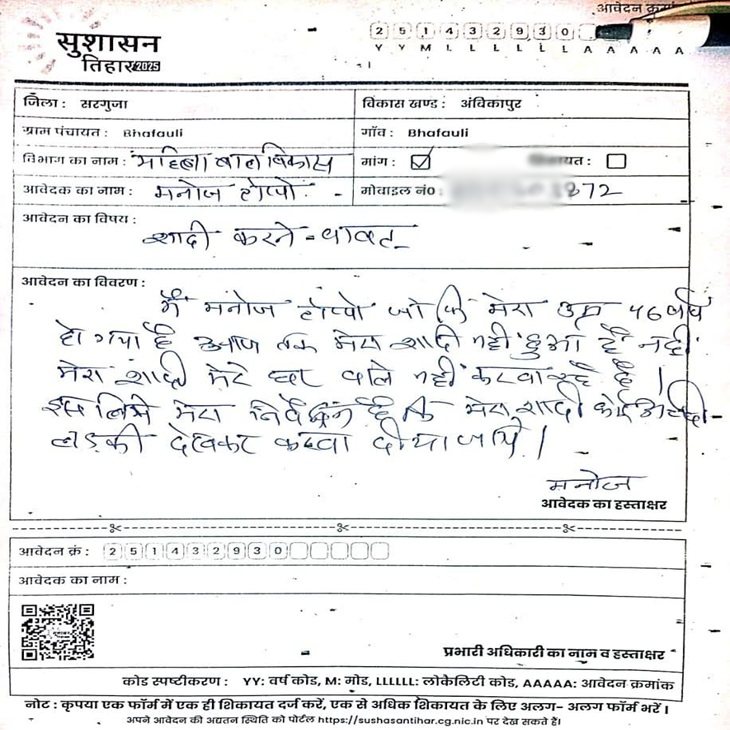 सुशासन
तिहार 2025
2 5 1 4 3 2 9 3 0
Y Y M L L L L L L A A A A A
जिला : सरगुजा
विकास खण्ड : अंविकापुर
ग्राम पंचायत : Bhafauli
गाँव : Bhafauli
विभाग का नाम : महिला बाल विकास
मांग :
आवेदक का नाम : मनोज टोप्पो
मोवाइल नं0 : 372
आवेदन का विषय :
शादी करने - वावत
आवेदन का विवरण :
मैं मनोज टोप्पो जो कि मेरा उम्र 46 वर्ष
हो गया है आज तक मेरा शादी नहीं हुआ है
मेरा शादी मेरे घर वाले नहीं करवा रहे है ।
इसलिये मेरा निवेदन है कि मेरा शादी कोई
लड़की देखकर करवा दीया जाये ।
मनोज
आवेदक का हस्ताक्षर
आवेदन क्रं : 2 5 1 4 3 2 9 3 0
आवेदक का नाम :
प्रभारी अधिकारी का नाम व हस्ताक्षर
कोड स्पष्टीकरण : YY: वर्ष कोड, M: मोड, LLLLLL: लोकेलिटी कोड, AAAAA: आवेदन क्रमांक
नोट : कृपया एक फॉर्म में एक ही शिकायत दर्ज करें, एक से अधिक शिकायत के लिए अलग- अलग फॉर्म भरें ।
अपने आवेदन की अद्यतन स्थिति को पोर्टल https://sushasantihar.cg.nic.in पर देख सकते हैं।